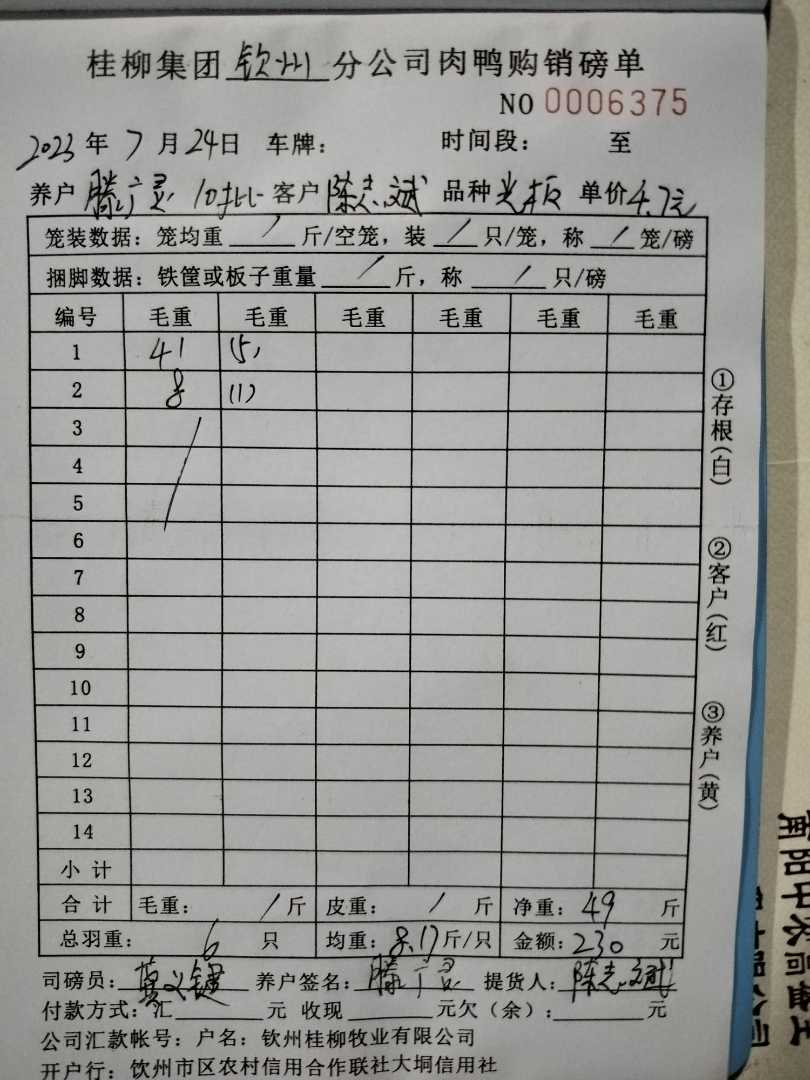 桂柳集团 钦州 分公司肉鸭购销磅单
NO 0006375
2023 年 7 月 24 日 车牌： 时间段： 至
养户 滕广灵 10批 客户 陈志斌 品种 光板 单价 4.7元
笼装数据：笼均重 / 斤/空笼，装 / 只/笼，称 / 笼/磅
捆脚数据：铁筐或板子重量 / 斤，称 / 只/磅
编号 毛重 毛重 毛重 毛重 毛重 毛重
1 41 (5)
2 8 (1)
3
4
5
6
7
8
9
10
11
12
13
14
小计
合计 毛重： / 斤 皮重： / 斤 净重：49 斤
总羽重： 6 只 均重：8.17 斤/只 金额：230 元
司磅员：莫义键 养户签名：滕广灵 提货人：陈志斌
付款方式：汇 元 收现 元欠（余）： 元
公司汇款帐号：户名：钦州桂柳牧业有限公司
开户行：钦州市区农村信用合作联社大垌信用社
①存根（白）
②客户（红）
③养户（黄）